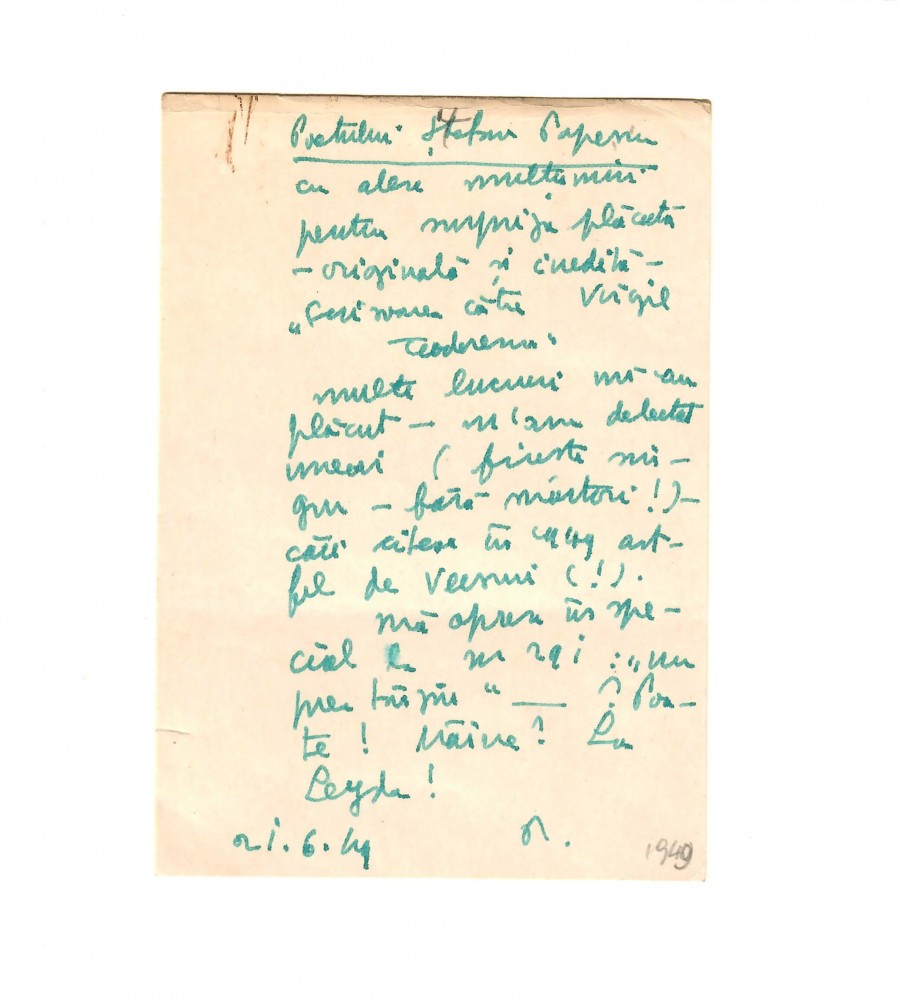 Poetului Ștefan Popescu
cu alese mulțumiri
pentru surpriza plăcută
– originală și inedită –
„Scrisoarea către Virgil
Teodorescu"
multe lucruri mi-au
plăcut – m'am delectat
uneori ( firește sin-
gur – fără martori !) –
câți citesc în 1949 ast-
fel de versuri (!).
mă opresc în spe-
cial la nr 29 i : „nu
prea târziu " — ? Poa-
te ! Mâine ? La
Leyda !
21.6.49
1949